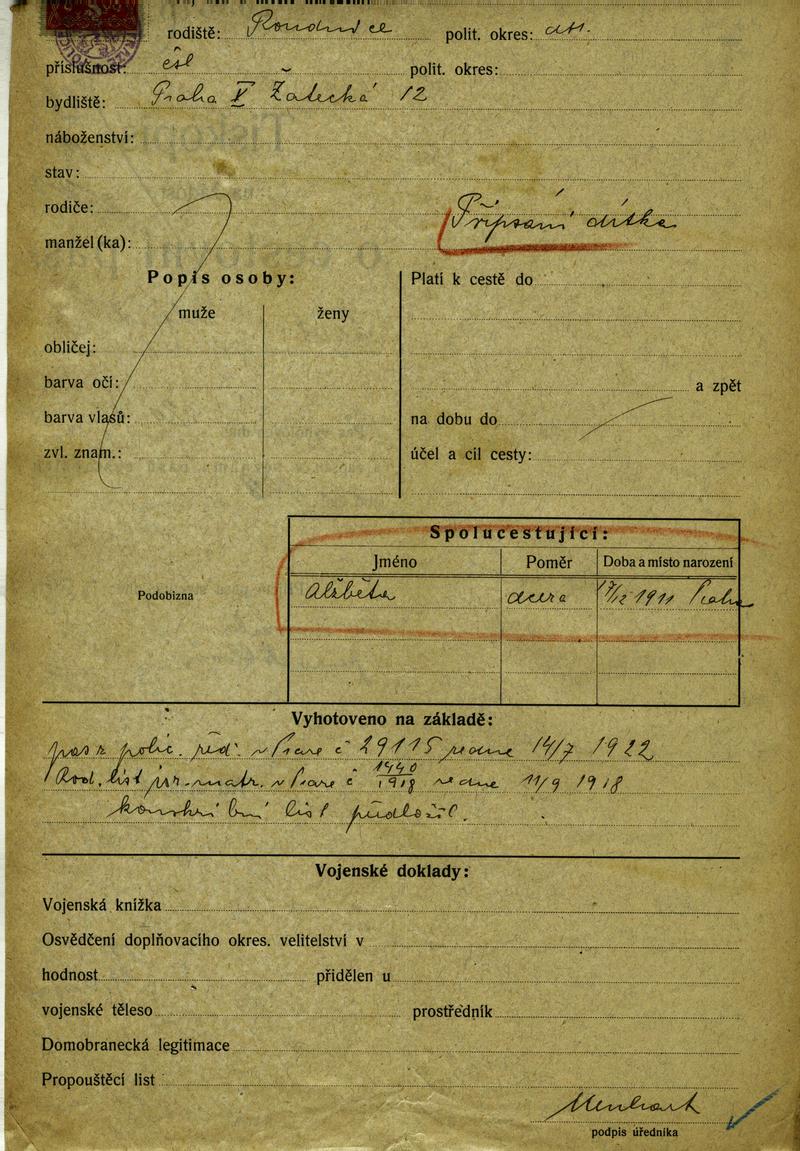 rodiště: Roudnice polit. okres:
příslušnost: čsl polit. okres:
bydliště: Praha V Žatecká 12
náboženství:
stav:
rodiče:
Připsání dítka
manžel (ka):
Popis osoby:
Platí k cestě do
muže ženy
obličej:
barva očí:
a zpět
barva vlasů:
na dobu do
zvl. znam.:
účel a cíl cesty:
Spolucestující:
Jméno Poměr Doba a místo narození
Podobizna
Alžběta dcera 1911 Praha
Vyhotoveno na základě:
pas č 29115 14/7 1922
Rod. list v Praze č 1440/1918 ze dne 11/9 1918
list předložil.
Vojenské doklady:
Vojenská knížka
Osvědčení doplňovacího okres. velitelství v
hodnost přidělen u
vojenské těleso prostředník
Domobranecká legitimace
Propouštěcí list
podpis úředníka